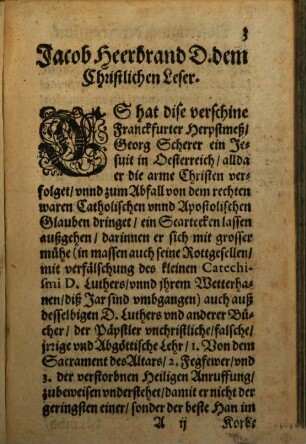 3
Jacob Heerbrand D. dem
Christlichen Leser.
ES hat dise verschine
Franckfurter Herpstmeß/
Georg Scherer ein Je-
suit in Oesterreich/ allda
er die arme Christen ver-
folget/ vnnd zum Abfall von dem rechten
waren Catholischen vnnd Apostolischen
Glauben dringet/ ein Scartecken lassen
außgehen/ darinnen er sich mit grosser
mühe (in massen auch seine Rottgesellen/
mit verfälschung des kleinen Catechi-
smi D. Luthers/ vnnd jhrem Wetterha-
nen/ diß Jar sind vmbgangen) auch auß
desselbigen D. Luthers vnd anderer Bü-
cher/ der Päpstler vnchristliche/ falsche/
jrrige vnd Abgöttische Lehr/ 1. Von dem
Sacrament des Altars/ 2. Fegfewer/ vnd
3. der verstorbnen Heiligen Anruffung/
zubeweisen vnderstehet/ damit er nicht der
geringsten einer/ sonder der beste Han im
A ij Korb-